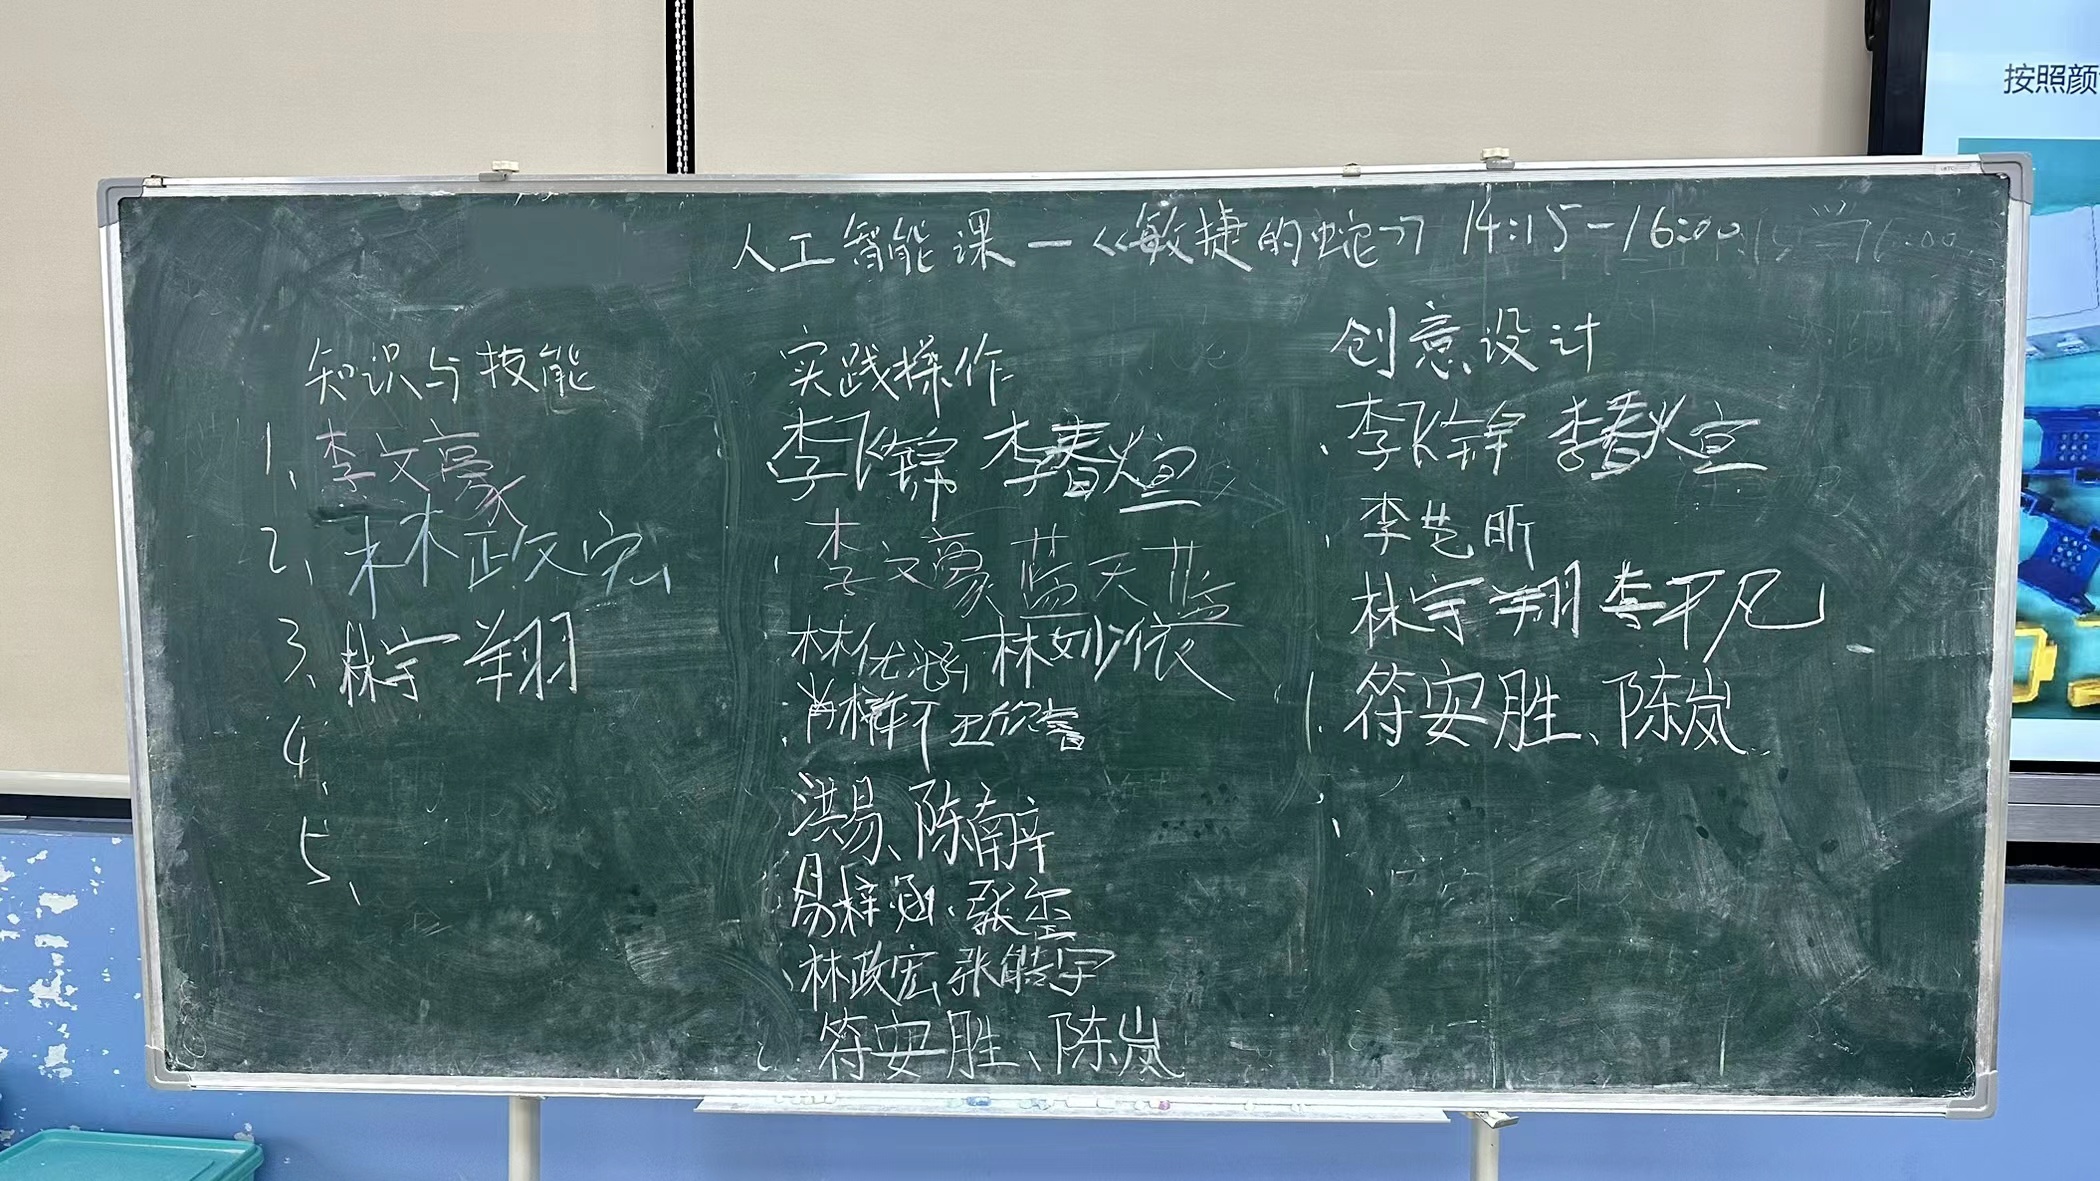 按照颜
人工智能课一《敏捷的蛇》 14:15-16:00
知识与技能
1、李文豪
2、林政宏
3、林宇翔
4、
5、
实践操作
李飞锦 李春煊
李文豪 蓝天蓝
林优涵 林妙依
肖梓 王欣
洪易、陈南辛
易梓涵、张玺
林政宏 张皓宇
符安胜、陈岚
创意设计
李飞锦 李春煊
李艺昕
林宇翔 李平凡
符安胜、陈岚